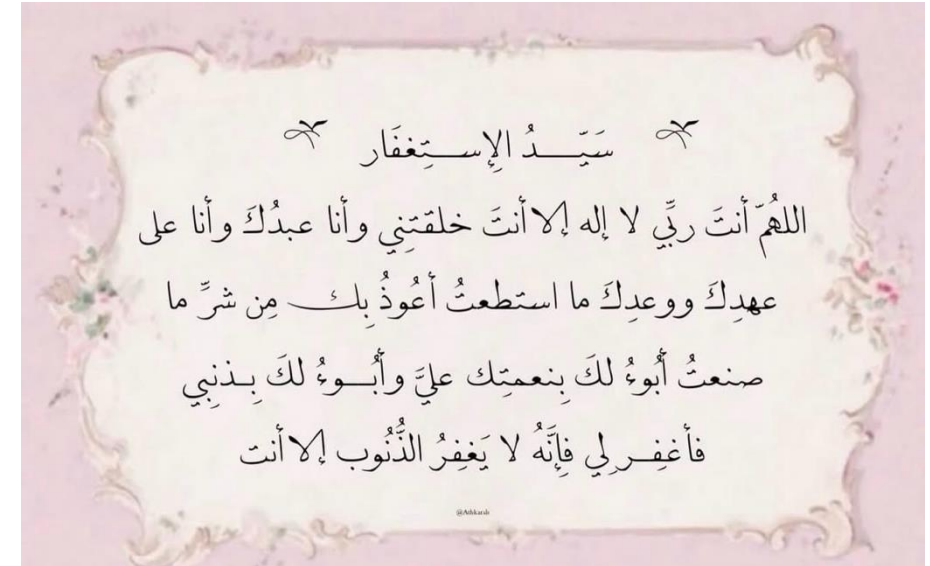 سَيّـــدُ الإِســـتِغفَار
اللهُمّ أنتَ ربِّي لا إله إلا أنتَ خلقتَنِي وأنا عبدُكَ وأنا على
عهدِكَ ووعدِكَ ما استطعتُ أعُوذُ بِك مِن شرِّ ما
صنعتُ أبُوءُ لكَ بِنعمتِك عليَّ وأبُــوءُ لكَ بِـذنبِي
فأغفِــر لِي فإِنَّهُ لا يَغفِرُ الذُّنُوب إلا أنت